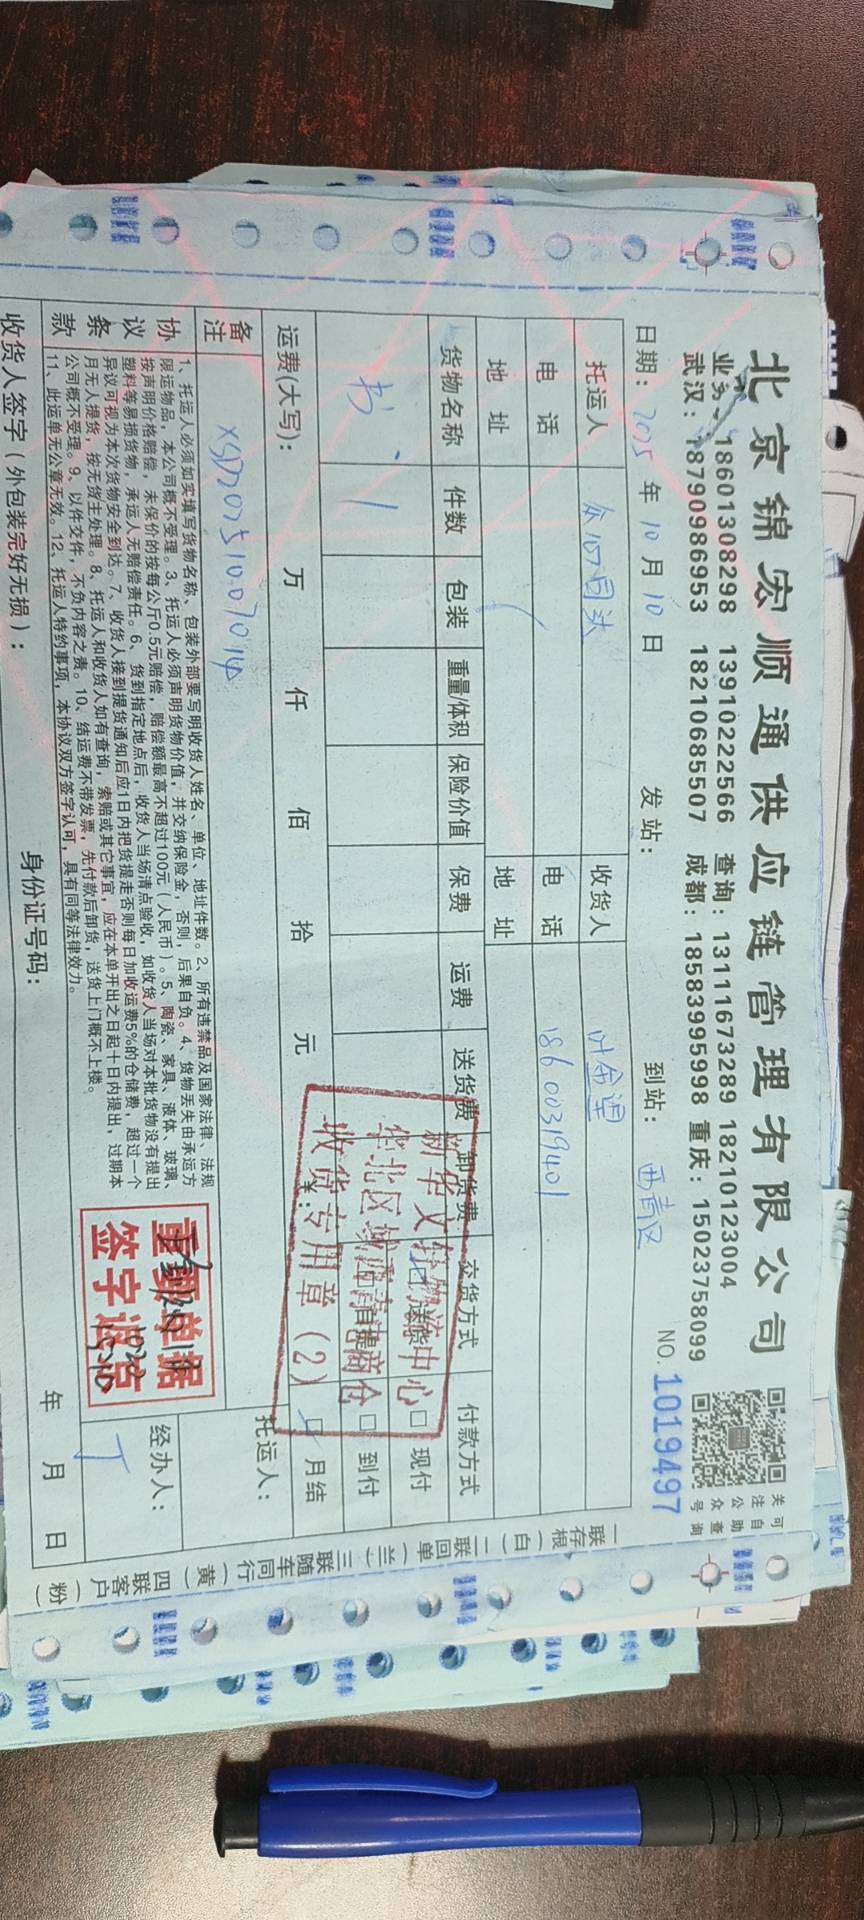 北京锦宏顺通供应链管理有限公司
业务: 18601308298 13910222566 查询: 13111673289 18210123004
武汉: 18790986953 18210685507 成都: 18583995998 重庆: 15023758099
关注公众号
可自助查询
日期: 2025 年 10 月 10 日 发站: 到站: 西青区 NO. 1019497
托运人 收货人
电话 电话 18600319401
地址 地址
货物名称 件数 包装 重量/体积 保险价值 保费 运费 送货费 卸货费 交货方式 付款方式
书 1 送货 □现付
自提 □到付
运费(大写): 万 仟 佰 拾 元 ¥: 月结
新华文轩物流中心
华北区域西青电商仓
收货专用章(2)
备注 XSD202510070014
托运人:
协议条款
1、托运人必须如实填写货物名称、包装外部要写明收货人姓名、单位、地址件数。2、所有违禁品及国家法律、法规
限运物品,本公司概不受理。3、托运人必须声明货物价值,并交纳保险金,否则,后果自负。4、货物丢失由承运方
按声明价格赔偿,未保价的按每公斤0.5元赔偿,赔偿额最高不超过100元(人民币)。5、陶瓷、家具、液体、玻璃、
塑料等易损货物,承运人无赔偿责任。6、货到指定地点后,收货人当场清点验收,如收货人当场对本批货物没有提出
异议可视为本次货物安全到达。7、收货人接到提货通知后应1日内把货提走否则每日加收运费5%的仓储费,超过一个
月无人提货,按无货主处理。8、托运人和收货人如有查询,索赔或其它事宜,应在本单开出之日起十日内提出,过期本
公司概不受理。9、以件交件,不负内容之责。10、结运费不带发票,先付款后卸货,送货上门概不上楼。
11、此运单无公章无效。12、托运人特约事项,本协议双方签字认可,具有同等法律效力。
重要单据
签字
经办人:
收货人签字(外包装完好无损): 身份证号码: 年 月 日
一联存根(白)二联回单(兰)三联随车同行(黄)四联客户(粉)